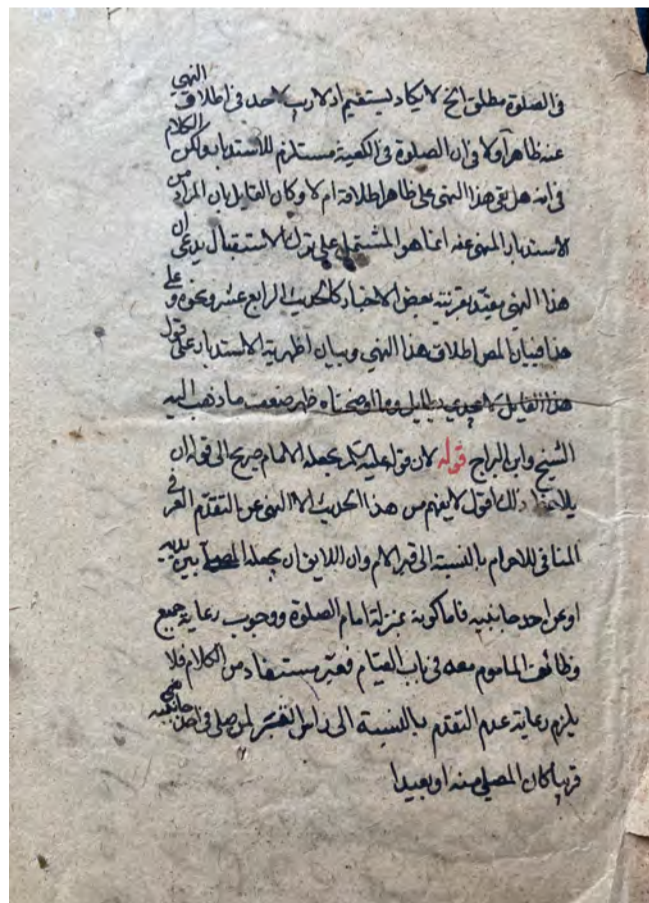 فى الصلوة مطلق الخ لا يكاد يستقيم اذ لا ريب لاحد فى اطلاق النهي
عنه ظاهرا ولا فى ان الصلوة فى الكعبة مستلزم للاستدبار ولكن الكلام
فى انه هل بقى هذا النهى على ظاهر اطلاقه ام لا وكان القايل بان المراد من
الاستدبار المنهى عنه انما هو المشتمل على ترك الاستقبال يدعى ان
هذا النهي مقيد بقرينة بعض الاخبار كالحديث الرابع عشر ونحوه وعلى
هذا فبيان المص اطلاق هذا النهي وبيان اظهرية الاستدبار على قول
هذا القايل لا يجدى بطايل ومما اوضحناه ظهر ضعف ما ذهب اليه
الشيخ وابن البراج قوله لان قوله عليه السلم يجعله الامام صريح الى قوله ان
ذلك اقول لا يفهم من هذا الحديث الا النهى عن التقدم فى
المنافى للاحرام بالنسبة الى قبر الامام وان اللايق ان يجعله المصلى بين يديه
او عن احد جانبيه فاما كونه بمنزلة امام الصلوة ووجوب رعاية جميع
وظائف الماموم معه فى باب القيام فغير مستفاد من الكلام فلا
يلزم رعاية عدم التقدم بالنسبة الى راس القبر لمن صلى فى احد جانبيه
قريبا كان المصلى منه او بعيدا